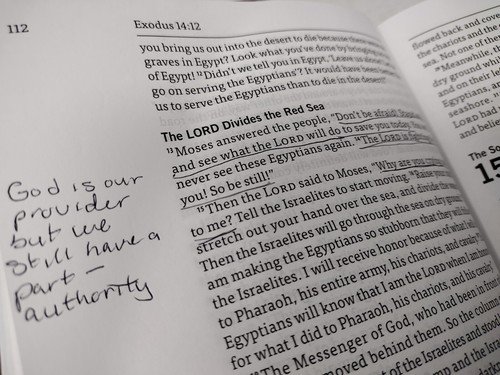 112
Exodus 14:12
you bring us out into the desert to die because there
graves in Egypt? Look what you've done by bringing
of Egypt! ¹²Didn't we tell you in Egypt, 'Leave us alone
go on serving the Egyptians'? It would have been
us to serve the Egyptians than to die in the desert!"
The LORD Divides the Red Sea
¹³Moses answered the people, "Don't be afraid!
and see what the LORD will do to save you today.
never see these Egyptians again. ¹⁴The LORD is
you! So be still!"
¹⁵Then the LORD said to Moses, "Why are you
to me? Tell the Israelites to start moving. ¹⁶Raise your
stretch out your hand over the sea, and divide the
Then the Israelites will go through the sea on dry ground.
am making the Egyptians so stubborn that they will
the Israelites. I will receive honor because of what I
to Pharaoh, his entire army, his chariots, and cavalry.
Egyptians will know that I am the LORD when I am
for what I did to Pharaoh, his chariots, and his cavalry
¹⁹The Messenger of God, who had been in front
moved behind them. So the column
of the Israelites and stood
and the Isra
God is our
provider
but we
still have a
part –
authority
flowed back and cov
the chariots and the c
sea. Not one of the
²⁹Meanwhile,
dry ground whi
and on their
Egyptians, an
seashore.
LORD had
and belie
The So
15